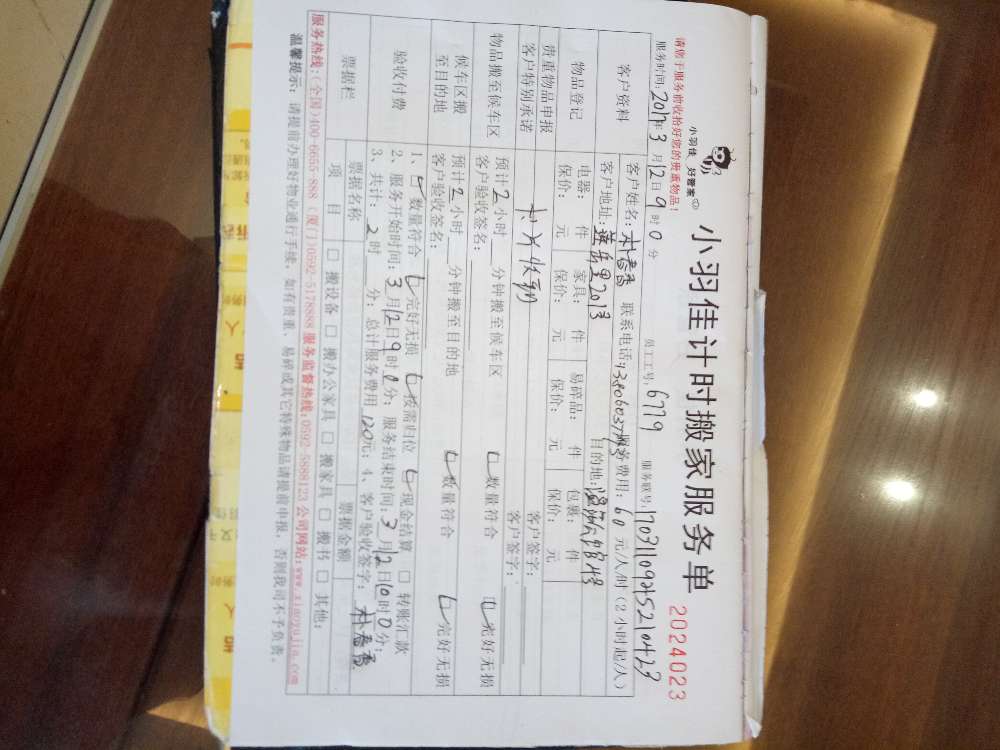 请您于服务前收拾好您的贵重物品!
小羽佳 好管家
小羽佳计时搬家服务单
2024023
服务时间:2017年3月12日9时0分 员工号:6779 服务联号:
客户资料
客户姓名: 联系电话: 服务费用:60元/人/时(2小时起/人)
客户地址:莲乐里2013 目的地:
物品登记
电器: 件 家具: 件 易碎品: 件 包裹: 件
保价: 元 保价: 元 保价: 元 保价: 元
贵重物品申报
客户签字:
客户特别承诺
客户签字:
物品搬至候车区
预计2小时 分钟搬至候车区 数量符合 完好无损
客户验收签名:
候车区搬至目的地
预计2小时 分钟搬至目的地 数量符合 完好无损
客户验收签名:
验收付费
1、数量符合 完好无损 按需归位 现金结算 □ 转账汇款
2、服务开始时间:3月12日9时0分;服务结束时间:3月12日10时0分;
3、共计:2时 分;总计服务费用120元;4、客户验收签字:
票据栏
票据名称 票据金额
项目 □ 搬设备 □ 搬办公家具 □ 搬家具 □ 搬书 □ 其他:
服务热线:(全国)400-6655-888 (厦门)0592-5178888 服务监督热线:0592-5888123 公司网站:www.xiaoyujia.com
温馨提示:请提前办理好物业通行手续,如有贵重、易碎或其它特殊物品请提前申报,否则我司不予负责。